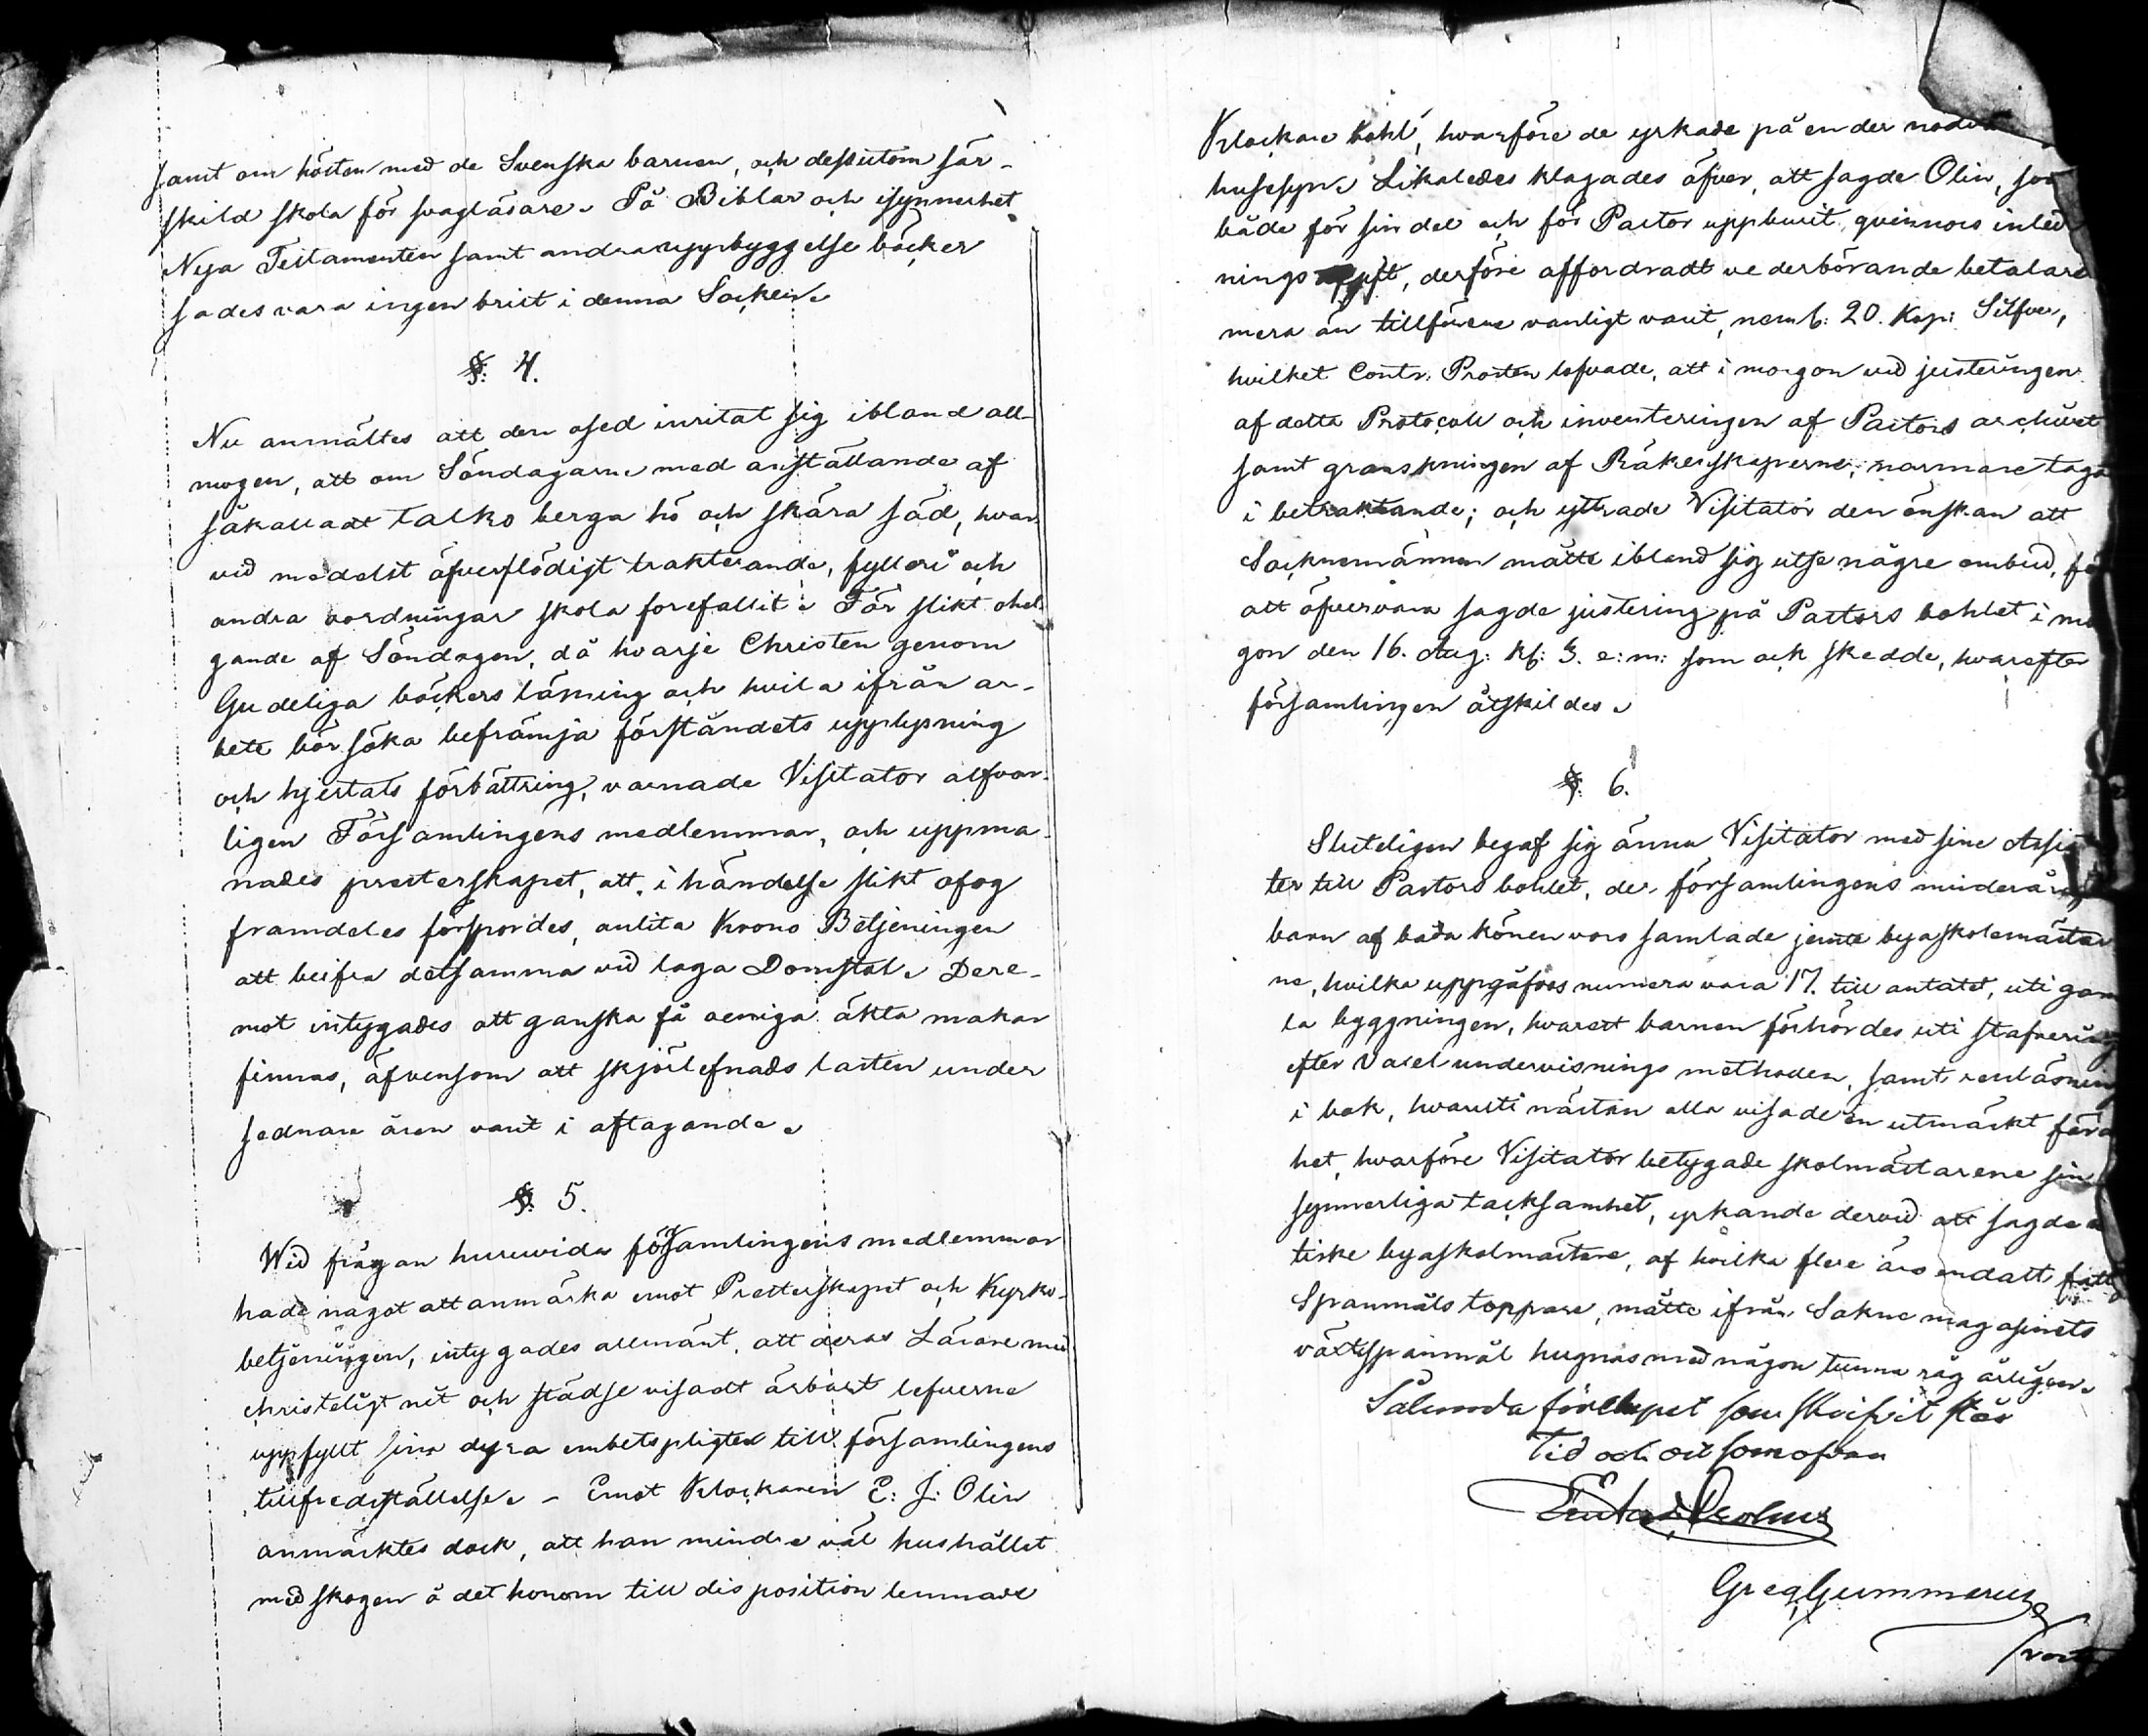 samt om hösten med de Svenska barnen, och dessutom sär-
skild skola för svagläsare. På Biblar och isynnerhet
Nya Testamenten samt andra uppbyggelse böcker
sades vara ingen brist i denna Socken.
§: 4.
Nu anmältes att den osed inritat sig ibland all-
mogen, att om Söndagarne med anställande af
såkalladt talko berga hö och skära säd, hvar
vid medelst öfverflödigt trakterande, fylleri och
andra oordningar skola forefallit. För slikt ohel-
gande af Söndagen, då hvarje Christen genom
Gudeliga böckers läsning och hvila ifrån ar-
bete bör söka befrämja förståndets upplysning
och hjertats förbättring, varnade Visitator alfvar-
ligen Församlingens medlemmar, och uppma-
nades presterskapet, att, i händelse slikt ofog
framdeles förspordes, anlita Krono Betjeningen
att beifra detsamma vid laga Domstol. Dere-
mot intygades att ganska få oeniga äkta makar
finnas, äfvensom att skjörlefnads lasten under
sednare åren varit i aftagande.
§: 5.
Wid frågan huruvida församlingens medlemmar
hade något att anmärka emot Presterskapet och Kyrko-
betjeningen, intygades allmänt, att deras Lärare med
christeligt nit och städse visadt ärbart lefverne
uppfyllt sina dyra embetspligter till församlingens
tillfredsställelse. - Emot Klockaren E: J: Olin
anmärktes dock, att han mindre väl hushållet
med skogen å det honom till disposition lemnade
Klockare bohl, hvarföre de yrkade på en der
husesyn. Likaledes klagades öfver, att sagde Olin, som
både för sin del och för Pastor uppburit, qvinnors inled
nings, derföre affordradt vederbörande betalare
mera än tillförene vanligt varit, neml: 20. Kop: Silfver,
hvilket Contr. Prosten lofvade, att i morgon vid justeringen
af detta Protocoll och inventeringen af Pastors archivet
samt granskningen af Räkenskaperne, närmare taga
i betraktande; och yttrade Visitator den önskan att
Socknemännen måtte ibland sig utse någre ombud, för
att öfvervara sagde justering på Pastors bohlet i mo
gon den 16. Aug: kl: 3. e:m: som ock skedde, hvarefter
församlingen åtskildes.
§: 6.
Sluteligen begaf sig ännu Visitator med sine
ter till Pastors bohlet, der församlingens minderåriga
barn af båda könen voro samlade jemte byaskolemästar
ne, hvilka uppgåfvos numera vara 17. till antalet, uti gam
la byggningen, hvarest barnen förhördes uti stafvering
efter Vexelundervisnings methoden, samt renläsning
i bok, hvaruti nästan alla visade en utmärkt färdig
het, hvarföre Visitator betygade skolmästarene sin
synnerliga tacksamhet, yrkande dervid att sagde
tiske byaskolmästare, af hvilka flere års endast fått
Spanmåls toppare, måtte ifrån Sokne magasinets
växtspanmål hugnas med någon tunna råg årligen.
Sålunda förelupet som skrifvit står
Tid och ort som ofvan
Greg Gummerus